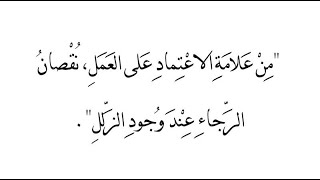 "مِنْ عَلَامَةِ الاعْتِمادِ عَلى العَمَلِ، نُقْصانُ
الرَّجاءِ عِنْدَ وُجودِ الزَّلَلِ".